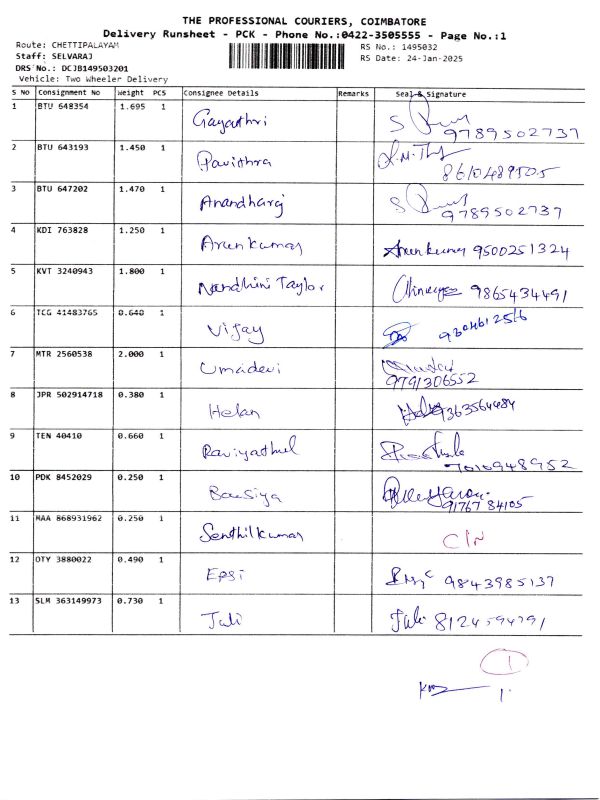 THE PROFESSIONAL COURIERS, COIMBATORE
Delivery Runsheet - PCK - Phone No.:0422-3505555 - Page No.:1
Route: CHETTIPALAYAM
RS No.: 1495032
Staff: SELVARAJ
RS Date: 24-Jan-2025
DRS No.: DCJB149503201
Vehicle: Two Wheeler Delivery
S No Consignment No Weight PCS Consignee Details Remarks Seal & Signature
1 BTU 648354 1.695 1 Gayathri 9789502737
2 BTU 643193 1.450 1 Pavithra
3 BTU 647202 1.470 1 Anandharaj 9789502737
4 KDI 763828 1.250 1 Arunkumar Arunkumar 9500251324
5 KVT 3240943 1.800 1 Nandhini Taylor 9865434491
6 TCG 41483765 0.640 1 Vijay
7 MTR 2560538 2.000 1 Umadevi 9791306552
8 JPR 502914718 0.380 1 Helan
9 TEN 40410 0.660 1 7010948952
10 PDK 8452029 0.250 1 9176784105
11 MAA 868931962 0.250 1 Senthilkumar
12 OTY 3880022 0.490 1 Epsi 9843985137
13 SLM 363149973 0.730 1 Juli Juli 8124594791
1